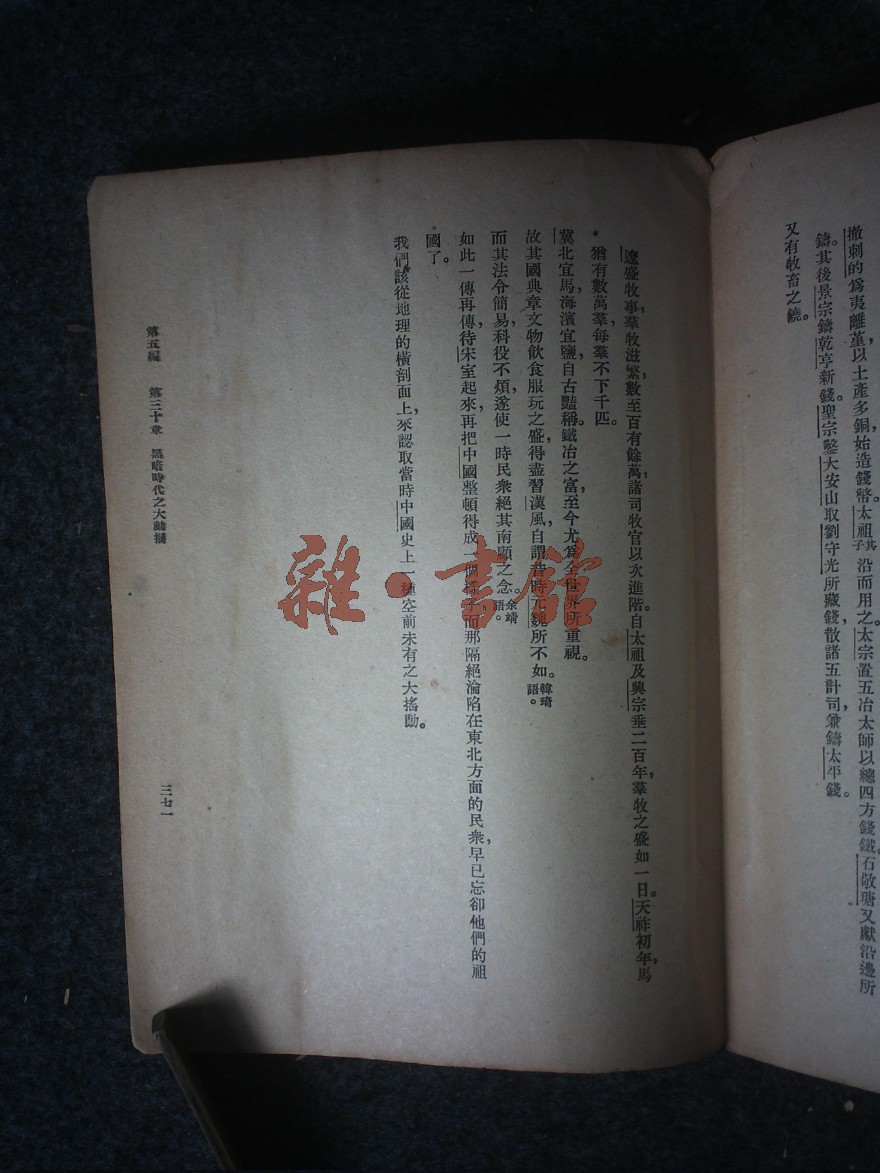 撒刺的為夷離堇以土產多銅始造錢幣。太祖其子沿而用之。太宗置五冶太師以總四方錢鐵。石敬瑭又獻沿邊所
鑄。其後景宗鑄乾亨新錢。聖宗鑿大安山取劉守光所藏錢散諸五計司兼鑄太平錢。
又有牧畜之饒。
遼盛牧事，羣牧滋繁數至百有餘萬，諸司牧官以次進階。自太祖及興宗垂二百年，羣牧之盛如一日。天祚初年，馬
猶有數萬羣，每羣不下千匹。
冀北宜馬，海濱宜鹽，自古豔稱。鐵冶之富，至今尤為全世界所重視。
故其國典章文物飲食服玩之盛，得盡習漢風，自謂昔時元魏所不如。韓琦語。
而其法令簡易，科役不煩，遂使一時民衆絕其南顧之念。余靖語。
如此一傳再傳，待宋室起來，再把中國整頓得成一個樣子，而那隔絕淪陷在東北方面的民衆，早已忘卻他們的祖
國了。
我們該從地理的橫剖面上，來認取當時中國史上一種空前未有之大搖動。
第五編 第三十章 黑暗時代之大動搖
三七一
雜·書館